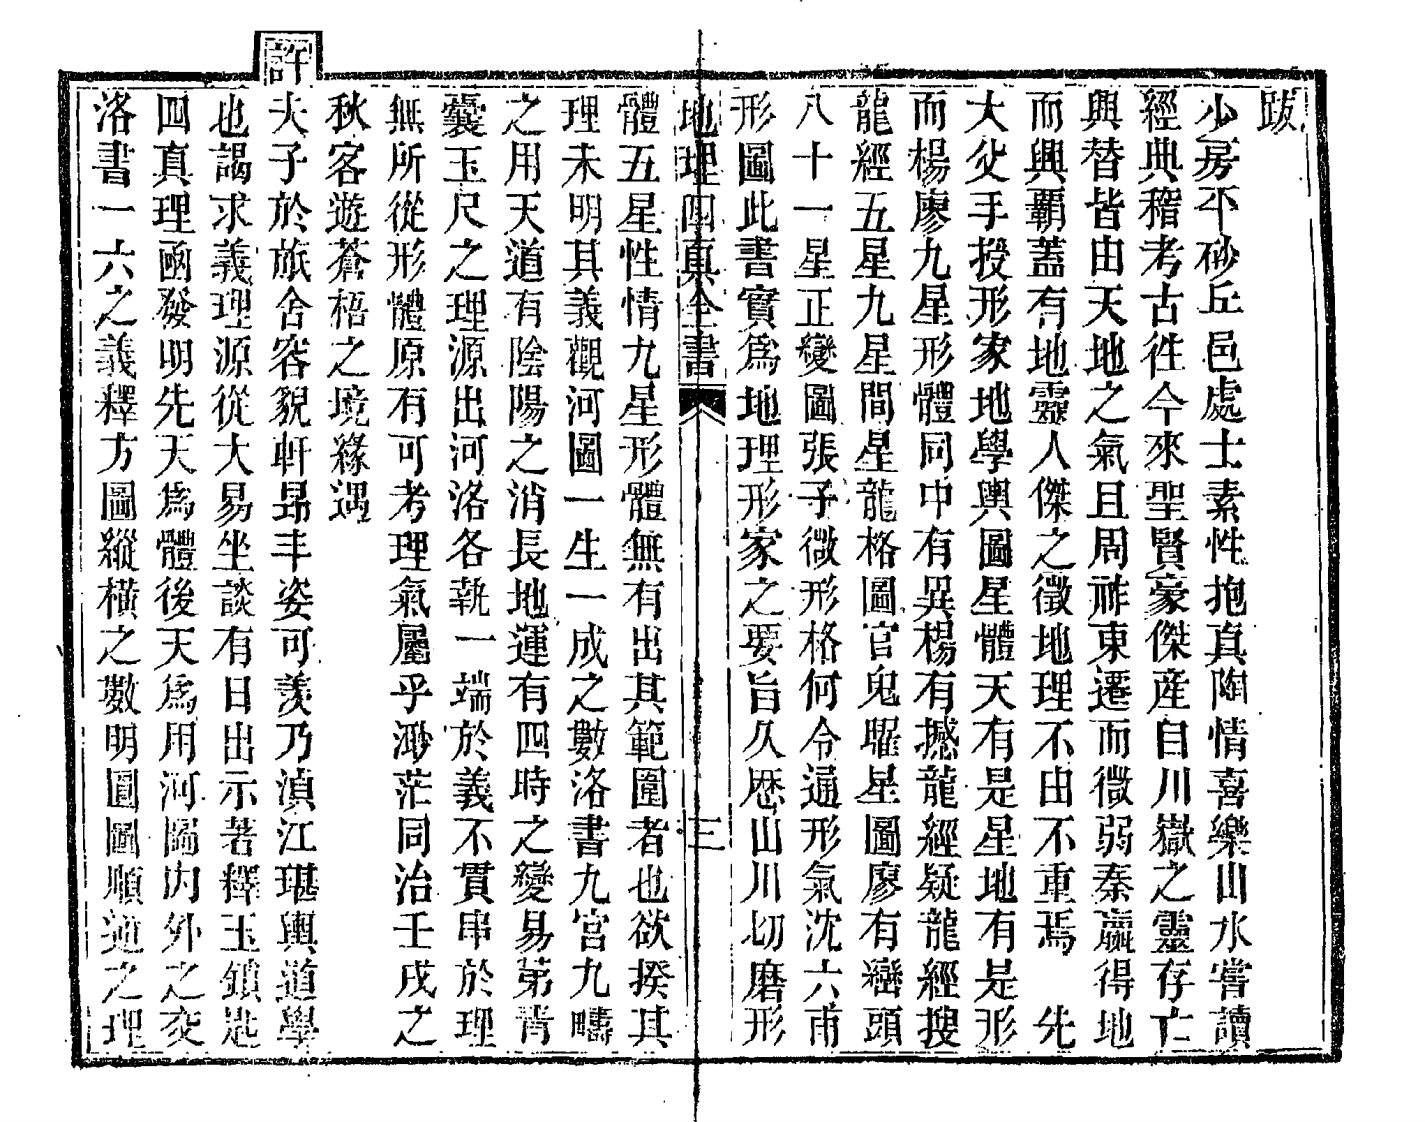 跋
少房不砂丘邑處士素性抱真陶情喜樂山水嘗讀
經典稽考古往今來聖賢豪傑產自川嶽之靈存亡
興替皆由天地之氣且周祚東遷而微弱秦嬴得地
而興霸蓋有地靈人傑之徵地理不由不重焉　先
大父手授形家地學輿圖星體天有是星地有是形
而楊廖九星形體同中有異楊有撼龍經疑龍經搜
龍經五星九星間星龍格圖官鬼曜星圖廖有巒頭
八十一星正變圖張子微形格何令通形氣沈六甫
形圖此書實爲地理形家之要旨久歷山川切磨形
地理四真全書　三
體五星性情九星形體無有出其範圍者也欲揆其
理未明其義觀河圖一生一成之數洛書九宮九疇
之用天道有陰陽之消長地運有四時之變易第青
囊玉尺之理源出河洛各執一端於義不貫串於理
無所從形體原有可考理氣屬乎渺茫同治壬戌之
秋客遊蒼梧之境緣遇
許
夫子於旅舍容貌軒昂丰姿可羨乃滇江堪輿道學
也謁求義理源從大易坐談有日出示著釋玉鎖匙
四真理函發明先天爲體後天爲用河圖內外之交
洛書一六之義釋方圖縱橫之數明圓圖順逆之理